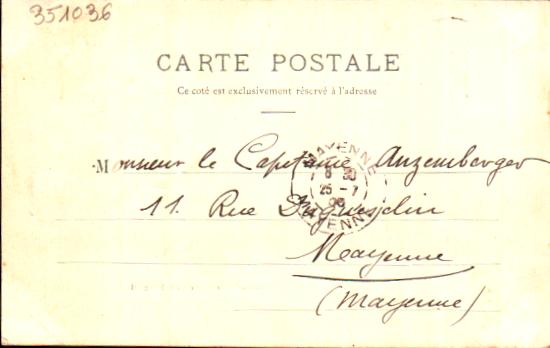 351036
CARTE POSTALE
Ce coté est exclusivement réservé à l'adresse
Monsieur le Capitaine Anzemberger
11. Rue Duguesclin
Mayenne
(Mayenne)
MAYENNE
8 30
25 - 7
MAYENNE